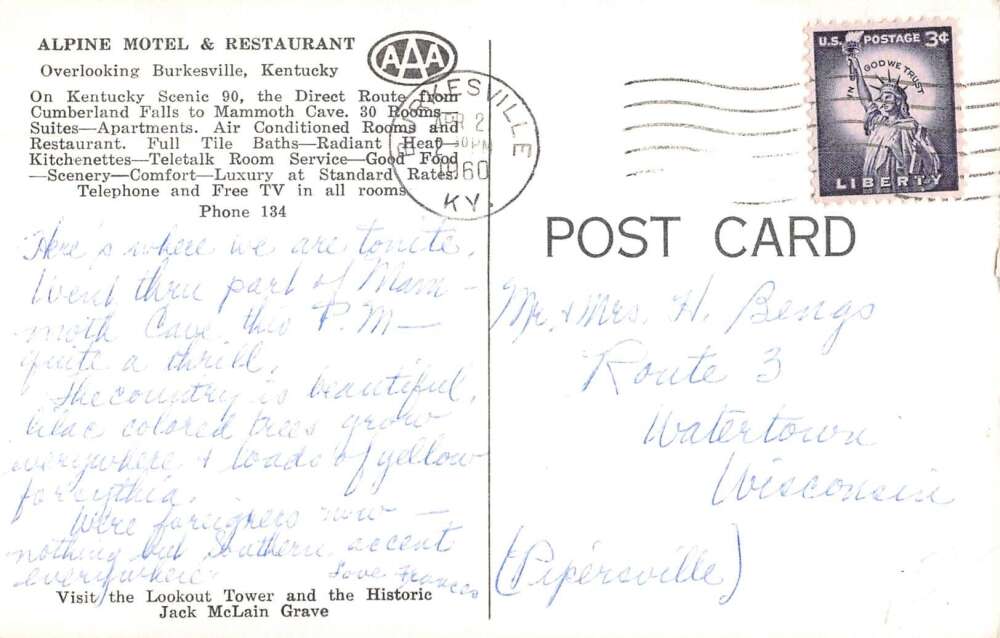 ALPINE MOTEL & RESTAURANT
AAA
Overlooking Burkesville, Kentucky
On Kentucky Scenic 90, the Direct Route from
Cumberland Falls to Mammoth Cave. 30 Rooms—
Suites—Apartments. Air Conditioned Rooms and
Restaurant. Full Tile Baths—Radiant Heat—
Kitchenettes—Teletalk Room Service—Good Food
—Scenery—Comfort—Luxury at Standard Rates.
Telephone and Free TV in all rooms
Phone 134
Here's where we are tonite.
Went thru part of Mam-
moth Cave this P.M—
quite a thrill.
The country is beautiful,
lilac colored trees grow
everywhere & loads of yellow
forsythia.
We're foreigners now —
nothing but Southern accent
everywhere
Love Frances
Visit the Lookout Tower and the Historic
Jack McLain Grave
BURKESVILLE
APR 2
30 PM
1960
KY.
U.S. POSTAGE 3¢
IN GOD WE TRUST
LIBERTY
POST CARD
Mr. & Mrs. H. Bengs
Route 3
Watertown
Wisconsin
(Pipersville)